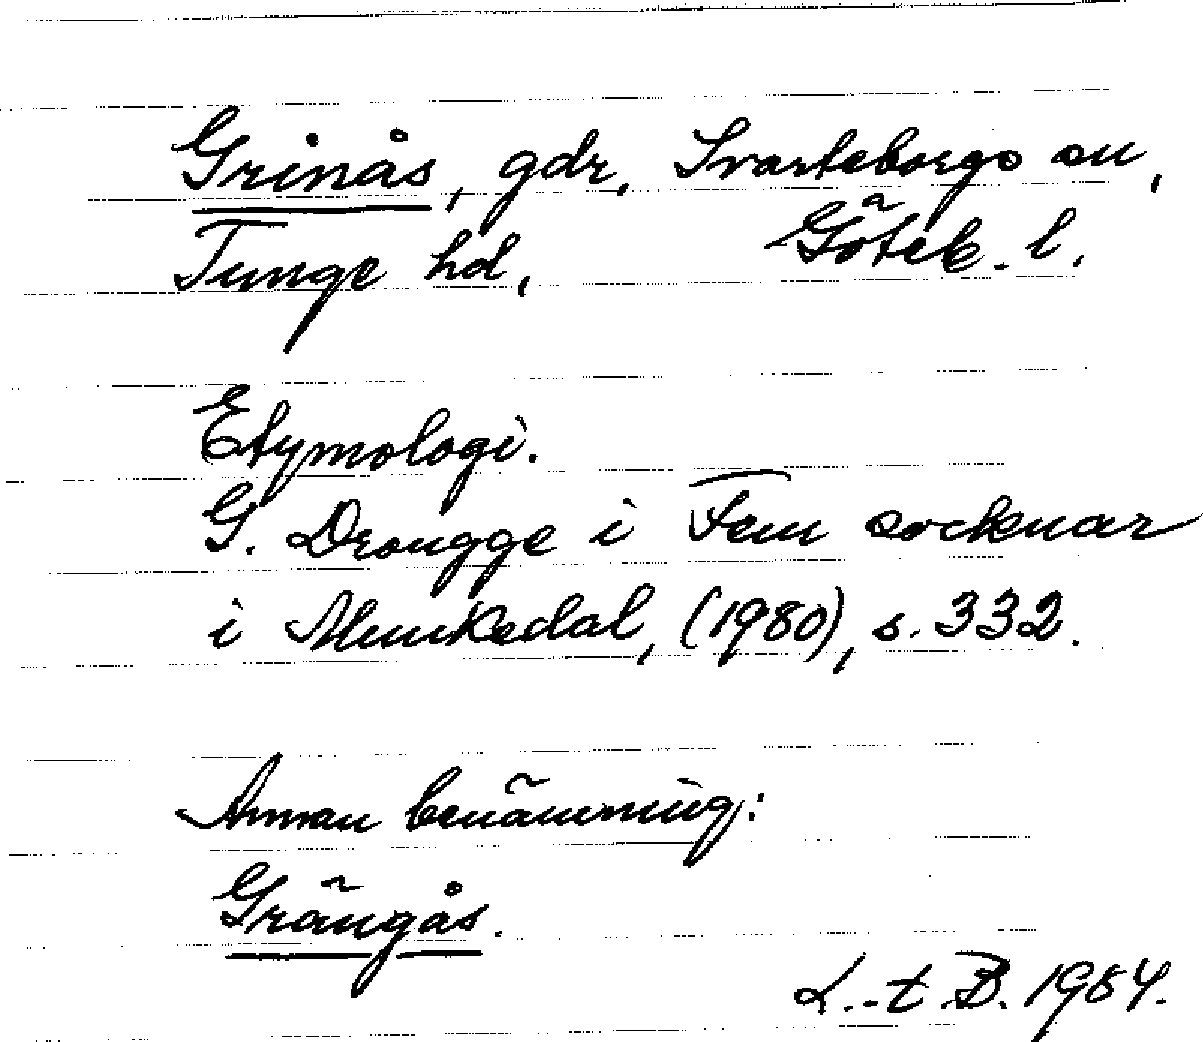 Grinås, gdr, Svarteborgs sn,
Tunge hd, Göteb. l.
Etymologi.
G. Drougge i Fem socknar
i Munkedal, (1980), s. 332.
Annan benämning:
Grängås.
L.-t B. 1984.